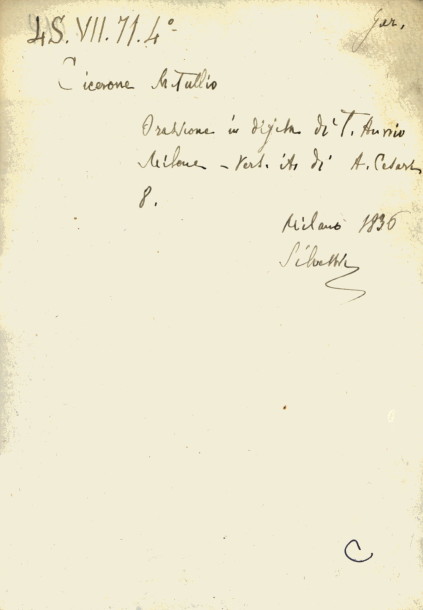 4S. VII. 71. 4°
Gar.
Cicerone M. Tullio
Orazione in difesa di T. Annio
Milone - Vers. ità di A. Cesari
8.
Milano 1836
Silvestri
C